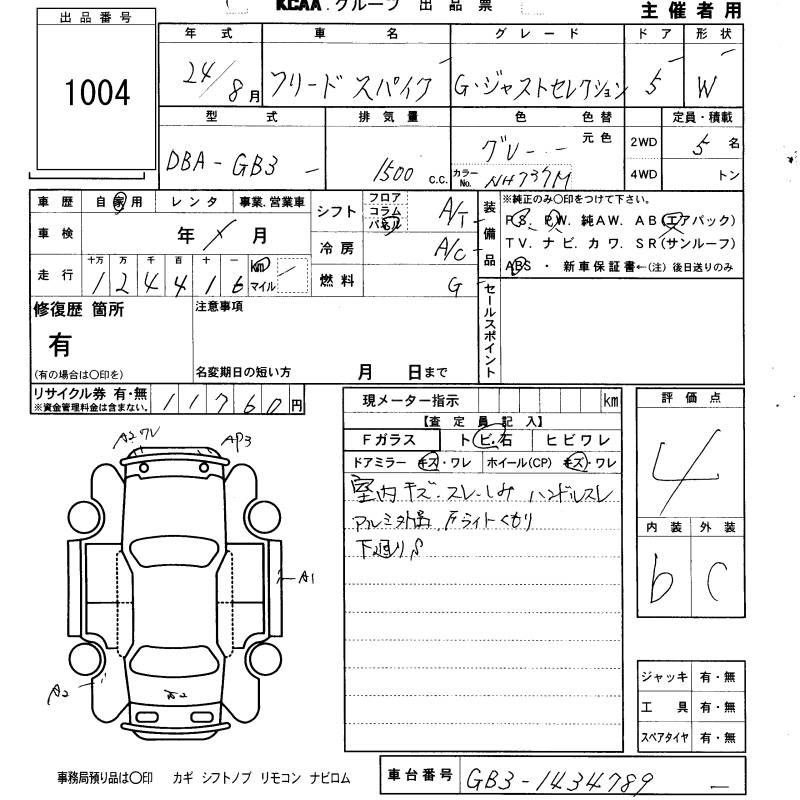 KCAA グループ 出品票
主催者用
出品番号
1004
年式 車名 グレード ドア 形状
24/8月 フリード スパイク G・ジャストセレクション 5 W
型式 排気量 色 色替 定員・積載
DBA-GB3 1500 c.c. グレー 元色 2WD 5 名
カラーNo. NH737M 4WD トン
車歴 自家用 レンタ 事業.営業車
車検 年 月
走行 十万 万 千 百 十 一
124416 Km マイル
シフト フロア コラム パネル A/T
冷房 A/C
燃料 G
装備品 ※純正のみ〇印をつけて下さい。
PS. PW. 純AW. AB(エアバック)
TV. ナビ. カワ. SR(サンルーフ)
ABS ・ 新車保証書←(注) 後日送りのみ
修復歴 箇所
有
(有の場合は〇印を)
注意事項
名変期日の短い方 月 日まで
セールスポイント
リサイクル券 有・無
※資金管理料金は含まない。
11760円
現メーター指示 km
【査定員記入】
Fガラス トビ・石 ヒビワレ
ドアミラー キズ・ワレ ホイール(CP) キズ・ワレ
室内キズ・スレ・しみ ハンドルスレ
アルミ外品 Fライトくもり
下廻りS
評価点
4
内装 外装
b C
A2 ワレ
AP3
A1
A2
A2
ジャッキ 有・無
工具 有・無
スペアタイヤ 有・無
事務局預り品は〇印 カギ シフトノブ リモコン ナビロム
車台番号 GB3-1434789